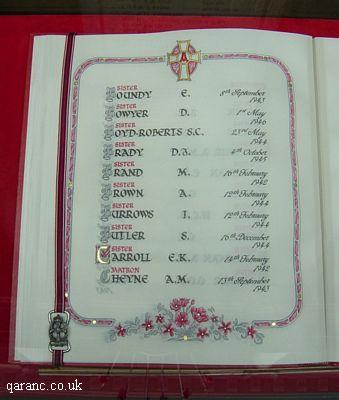 A
SISTER
BOUNDY E. 8th September 1943
SISTER
BOWYER D. 1st May 1946
SISTER
BOYD-ROBERTS S.C. 23rd May 1944
SISTER
BRADY D.J. 4th October 1945
SISTER
BRAND M. 16th February 1942
SISTER
BROWN A. 12th February 1944
SISTER
BURROWS J. 12th February 1944
SISTER
BUTLER S. 16th December 1944
SISTER
CARROLL E.K. 14th February 1942
MATRON
CHEYNE A.M. 13th September 1943
qaranc.co.uk